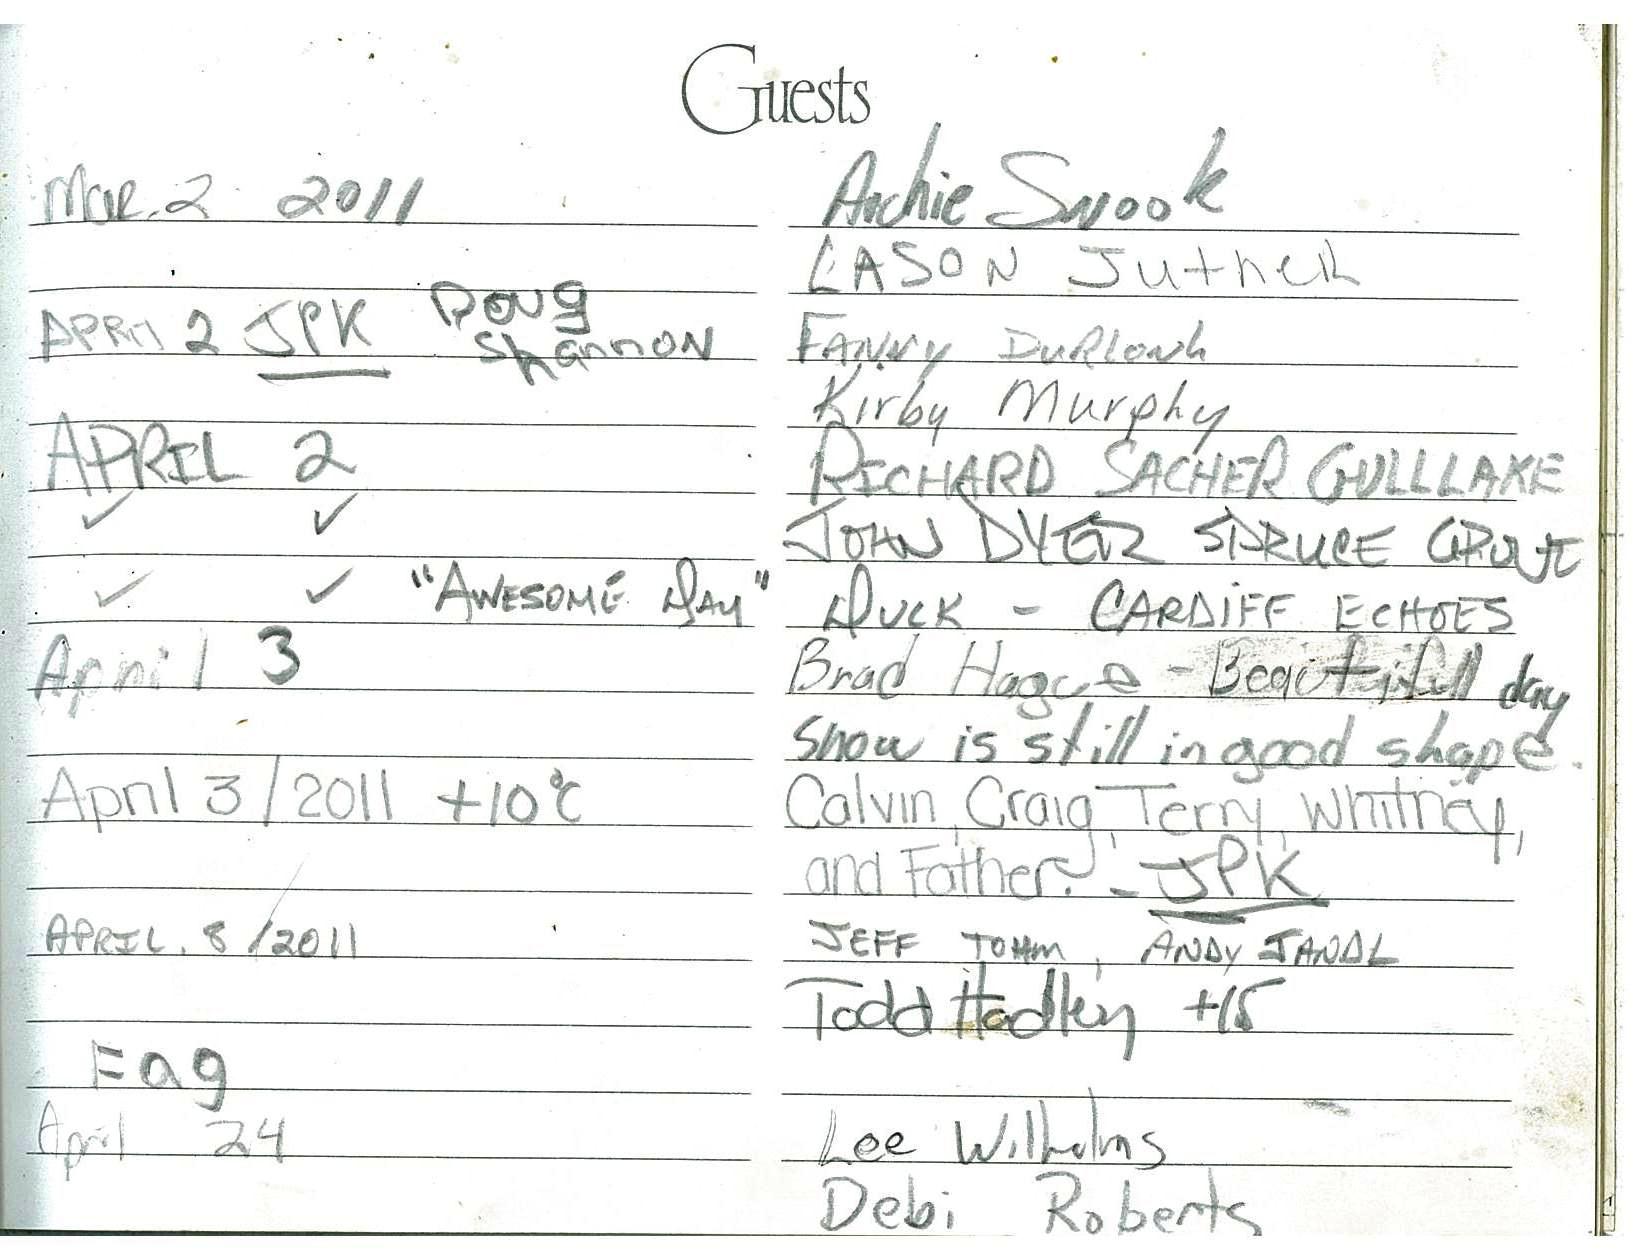 Guests
Mar. 2 2011 Archie Snook
LASON Jutner
APRIL 2 JPK Doug Shannon FANNY DuRLOWh
Kirby Murphy
APRIL 2 RICHARD SACHER GULLLAKE
✓ ✓ JOHN DYER SPRUCE GROVE
✓ ✓ "AWESOME DAY" DUCK - CARDIFF ECHOES
April 3 Brad Hague - Beautifull day
snow is still in good shape.
April 3/2011 +10°C Calvin, Craig, Terry, Whitney,
and Father. - JPK
APRIL. 8/2011 JEFF TOHM, ANDY JANDL
Todd Hadley +15
Fag
April 24 Lee Wilhelms
Debi Roberts